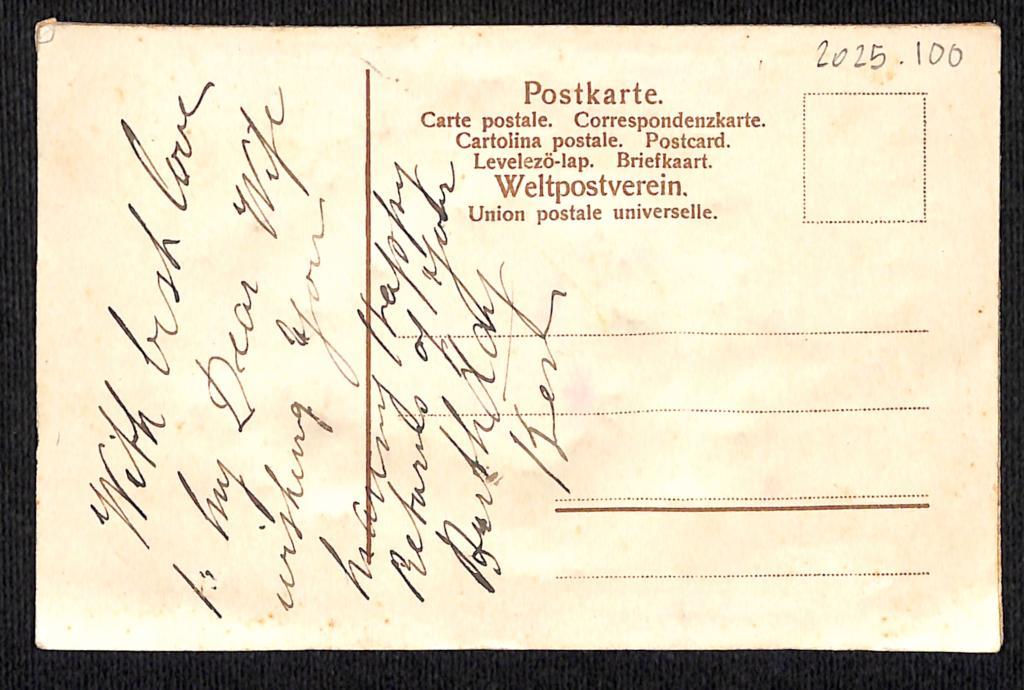 2025.100
Postkarte.
Carte postale. Correspondenzkarte.
Cartolina postale. Postcard.
Levelezö-lap. Briefkaart.
Weltpostverein.
Union postale universelle.
With best love
to my Dear Wife
wishing you
many Happy
Returns of your
Birthday
Bert